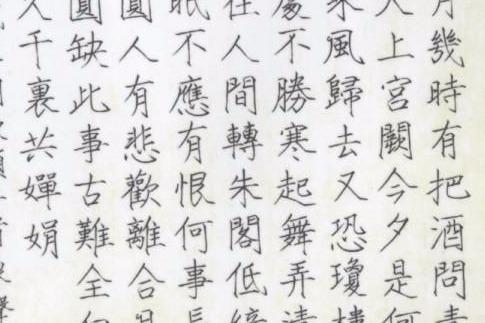 月幾時有把酒問青
天上宮闕今夕是何
乘風歸去又恐瓊樓
處不勝寒起舞弄清
在人間轉朱閣低綺
眠不應有恨何事長
圓人有悲歡離合月
圓缺此事古難全但
久千裏共嬋娟